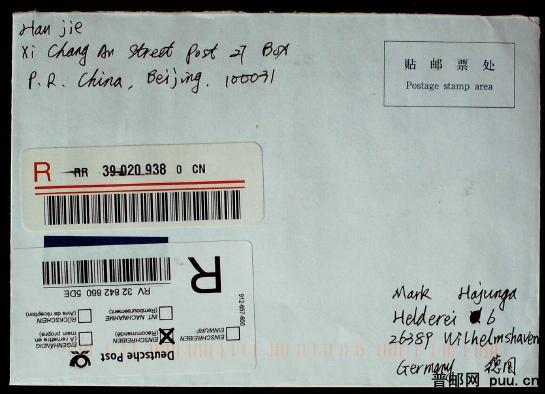 Han jie
Xi Chang An Street Post 27 Box
P.R. China, Beijing. 100031
贴 邮 票 处
Postage stamp area
R RR 39 020 938 0 CN
R
RV 32 842 860 5DE
912-657-860
EINSCHREIBEN EINWURF
EINSCHREIBEN (Recommandé)
MIT NACHNAHME (Remboursement)
EIGENHÄNDIG (A remettre en main propre)
RÜCKSCHEIN (Avis de réception)
Deutsche Post
Mark Hajunga
Helderei 6
26389 Wilhelmshaven
Germany 德国
普邮网 puu.cn